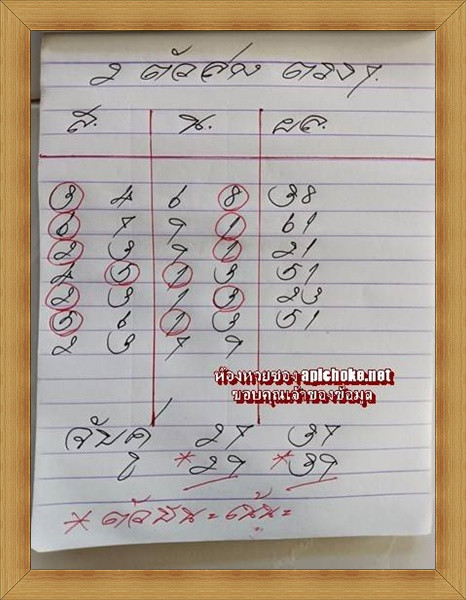 2 ตัวล่าง ตรงๆ
ส. น. ผล.
3 4 6 8 38
6 7 9 1 61
2 3 9 1 21
4 5 1 3 51
2 3 1 3 23
5 6 1 3 51
2 3 7 9
ห้องหวยซอง apichoke.net
ขอบคุณเจ้าของข้อมูล
จับคู่ 27 37
*29 *39
* ตัวนี้นะ